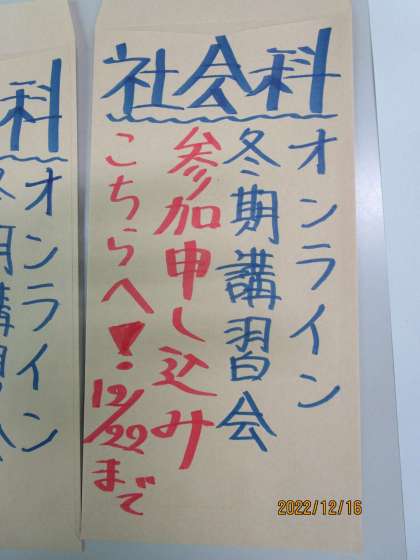 社会科
オンライン
冬期講習会
参加申し込み
こちらへ!
12/22まで
科
オンライン
冬期講習会
2022/12/16